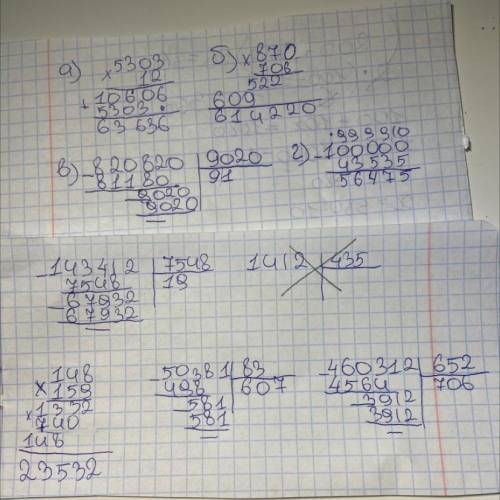 а) 5303 б) 870
× 12 × 706
10606 522
+ 5303. 609
63636 614220
в) -820820 | 9020 г) -100000
81180 | 91 43535
-9020 56475
9020
-143412 | 7548 1412 | 435
7548 | 19
-67932
67932
148 -50381 | 83 -460312 | 652
× 159 498 | 607 4564 | 706
× 1332 -581 -3912
740 581 3912
148
23532